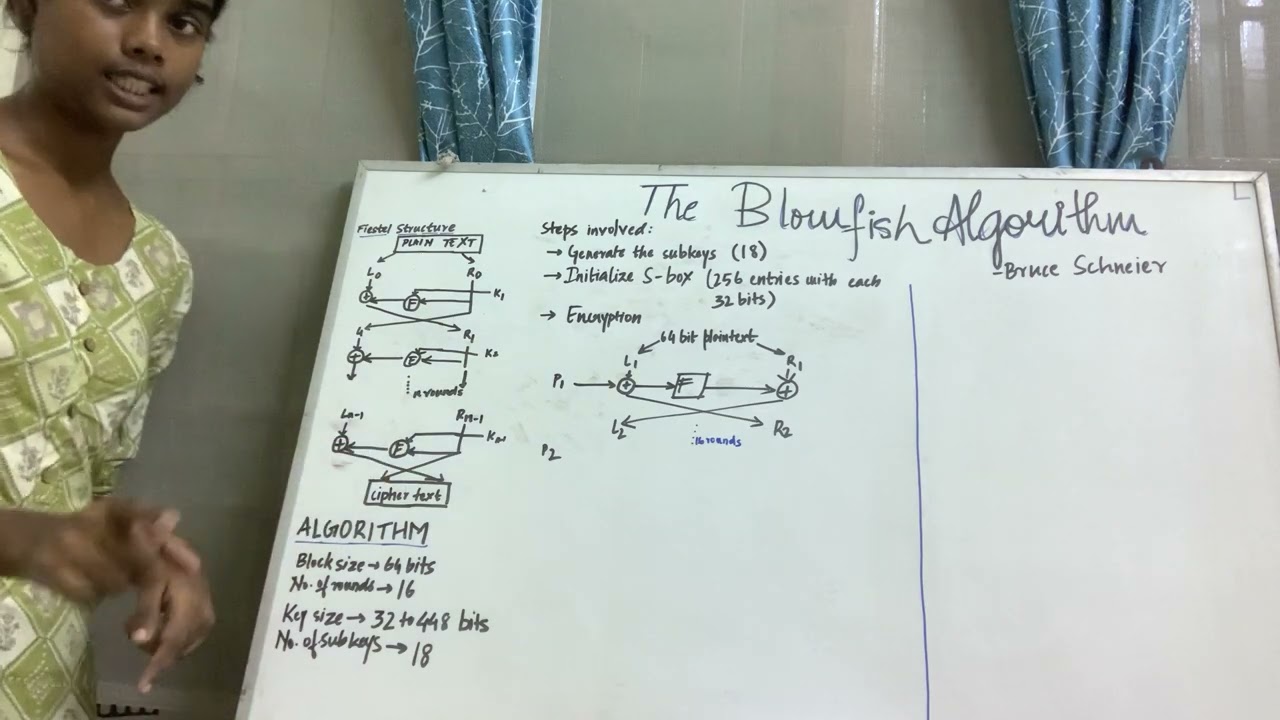 The Blowfish Algorithm
-Bruce Schneier
Fiestel Structure
PLAIN TEXT
L0 R0
F K1
L1 R1
F K2
n rounds
Ln-1 Rn-1
F Kn-1
cipher text
ALGORITHM
Block size → 64 bits
No. of rounds → 16
Key size → 32 to 448 bits
No. of subkeys → 18
Steps involved:
→ Generate the subkeys (18)
→ Initialize S-box (256 entries with each
32 bits)
→ Encryption
64 bit plaintext
L1 R1
P1 F
L2 R2
16 rounds
P2